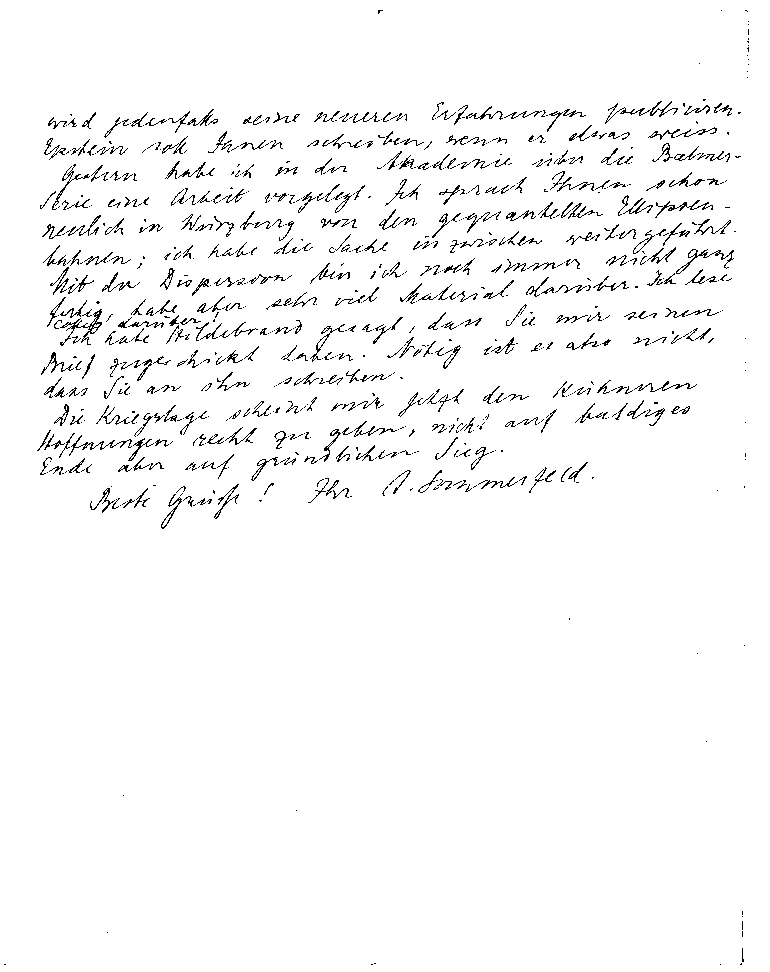 wird jedenfalls seine neueren Erfahrungen publiciren.
Epstein soll Ihnen schreiben, wenn er etwas weiss.
Gestern habe ich in der Akademie über die Balmer-
Serie eine Arbeit vorgelegt. Ich sprach Ihnen schon
neulich in Würzburg von den gequantelten Ellipsen-
bahnen; ich habe die Sache inzwischen weitergeführt.
Mit der Dispersion bin ich noch immer nicht ganz
fertig, habe aber sehr viel Material darüber. Ich lese
Colleg darüber!
Ich habe Hildebrand gesagt, dass Sie mir seinen
Brief zugeschickt haben. Nötig ist es also nicht,
dass Sie an ihn schreiben.
Die Kriegslage scheint mir jetzt den kühneren
Hoffnungen recht zu geben, nicht auf baldiges
Ende aber auf gründlichen Sieg.
Beste Grüsse! Ihr A. Sommerfeld.